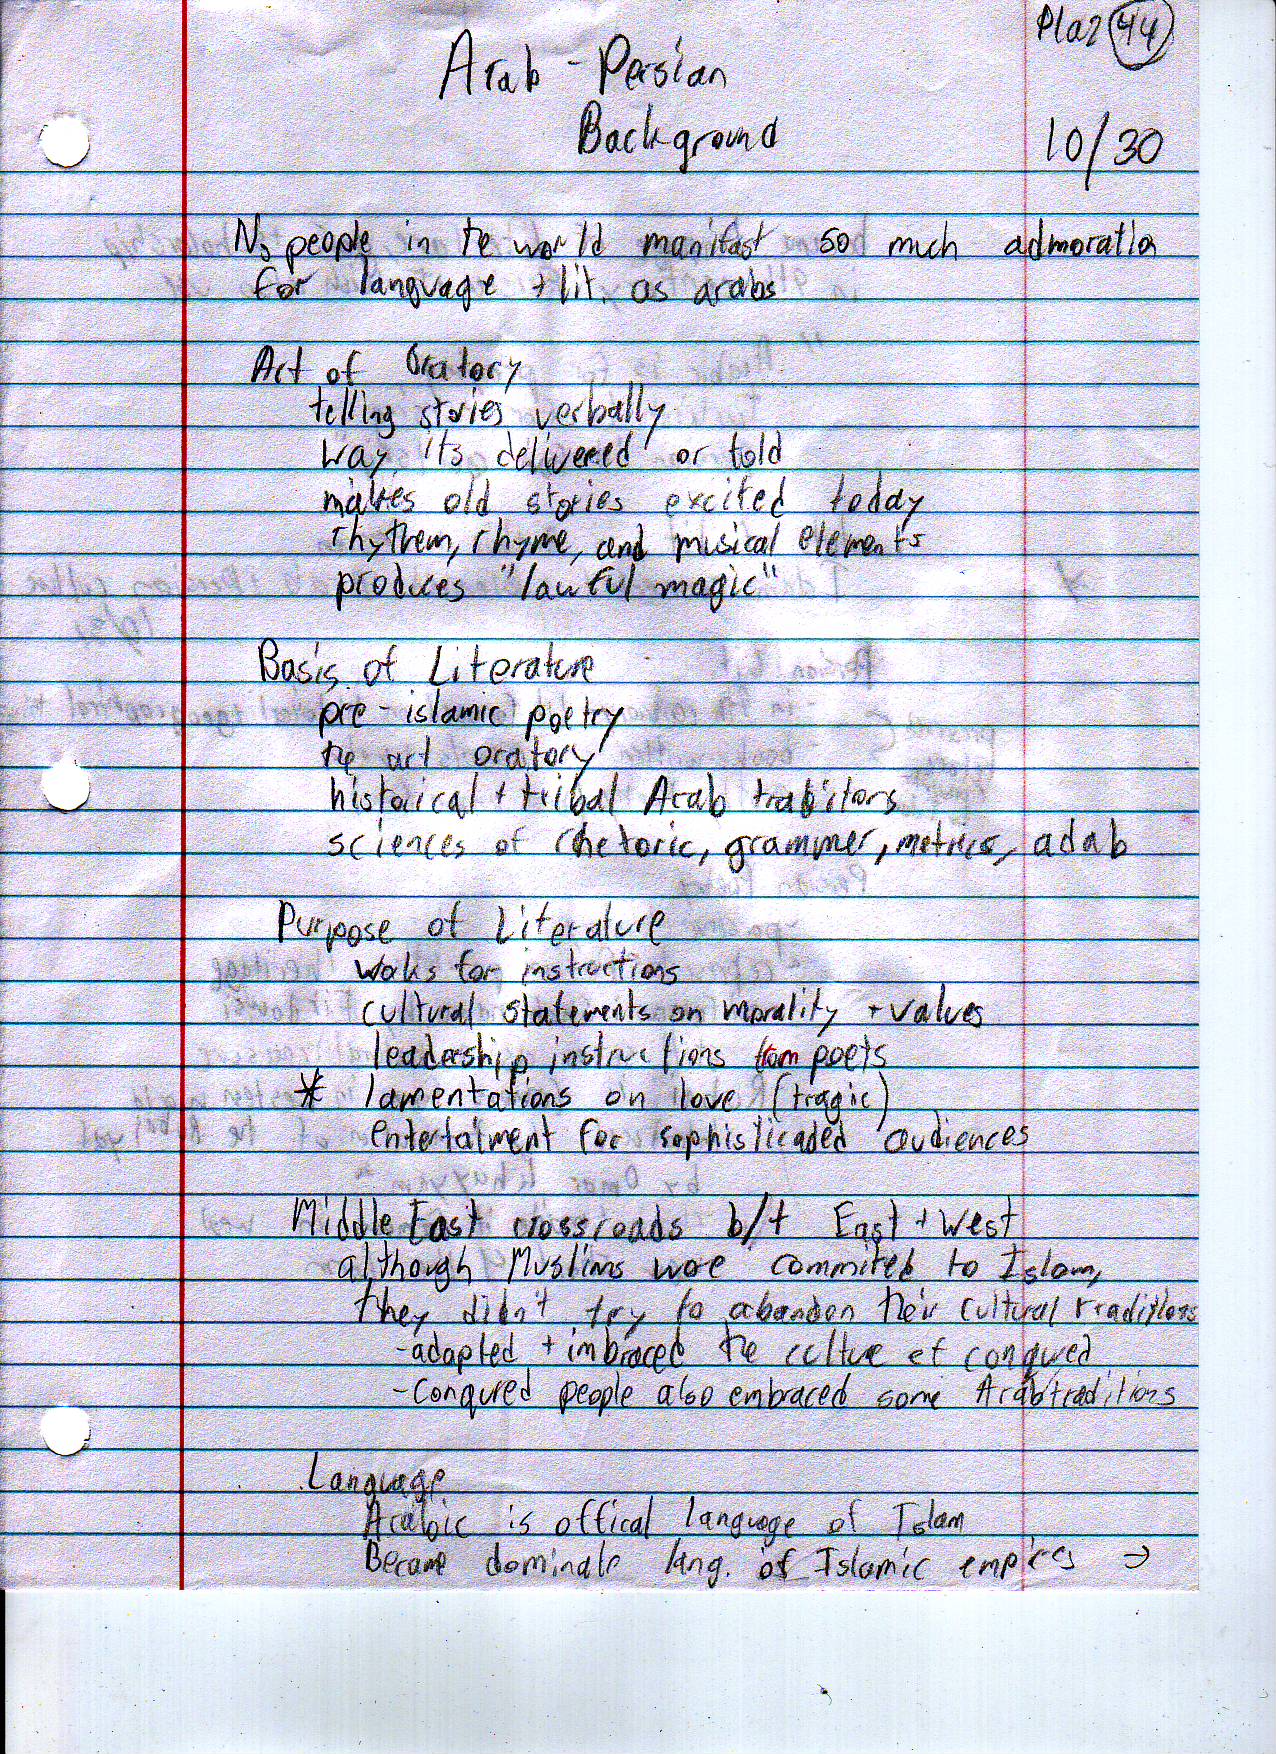 44
Arab - Persian
Background
10/30
No people in te world manifast so much admoratio
for language + lit. as arabs
Art of Oratory
telling stories verbally
way its delivered or told
makes old stories excited today
rhythem, rhyme, and musical elements
produces "lawful magic"
Basis of Literature
pre-islamic poetry
te art oratory
historical + tribal Arab traditors
sciences of rhetoric, grammer, metrics, adab
Purpose of Literature
works for instructions
cultural statements on morality + values
leadership instructions from poets
* lamentations on love (tragic)
entertaiment for sophisticaded audiences
Middle East crossroads b/t East + West
although Muslims wore commited to Islam,
they didn't try to abandon their cultural traditions
-adapted + imbraced the cultue of conqured
-Conqured people also embraced some Arab traditions
Language
Arabic is offical language of Islam
Became dominate lang. of Islamic empires →